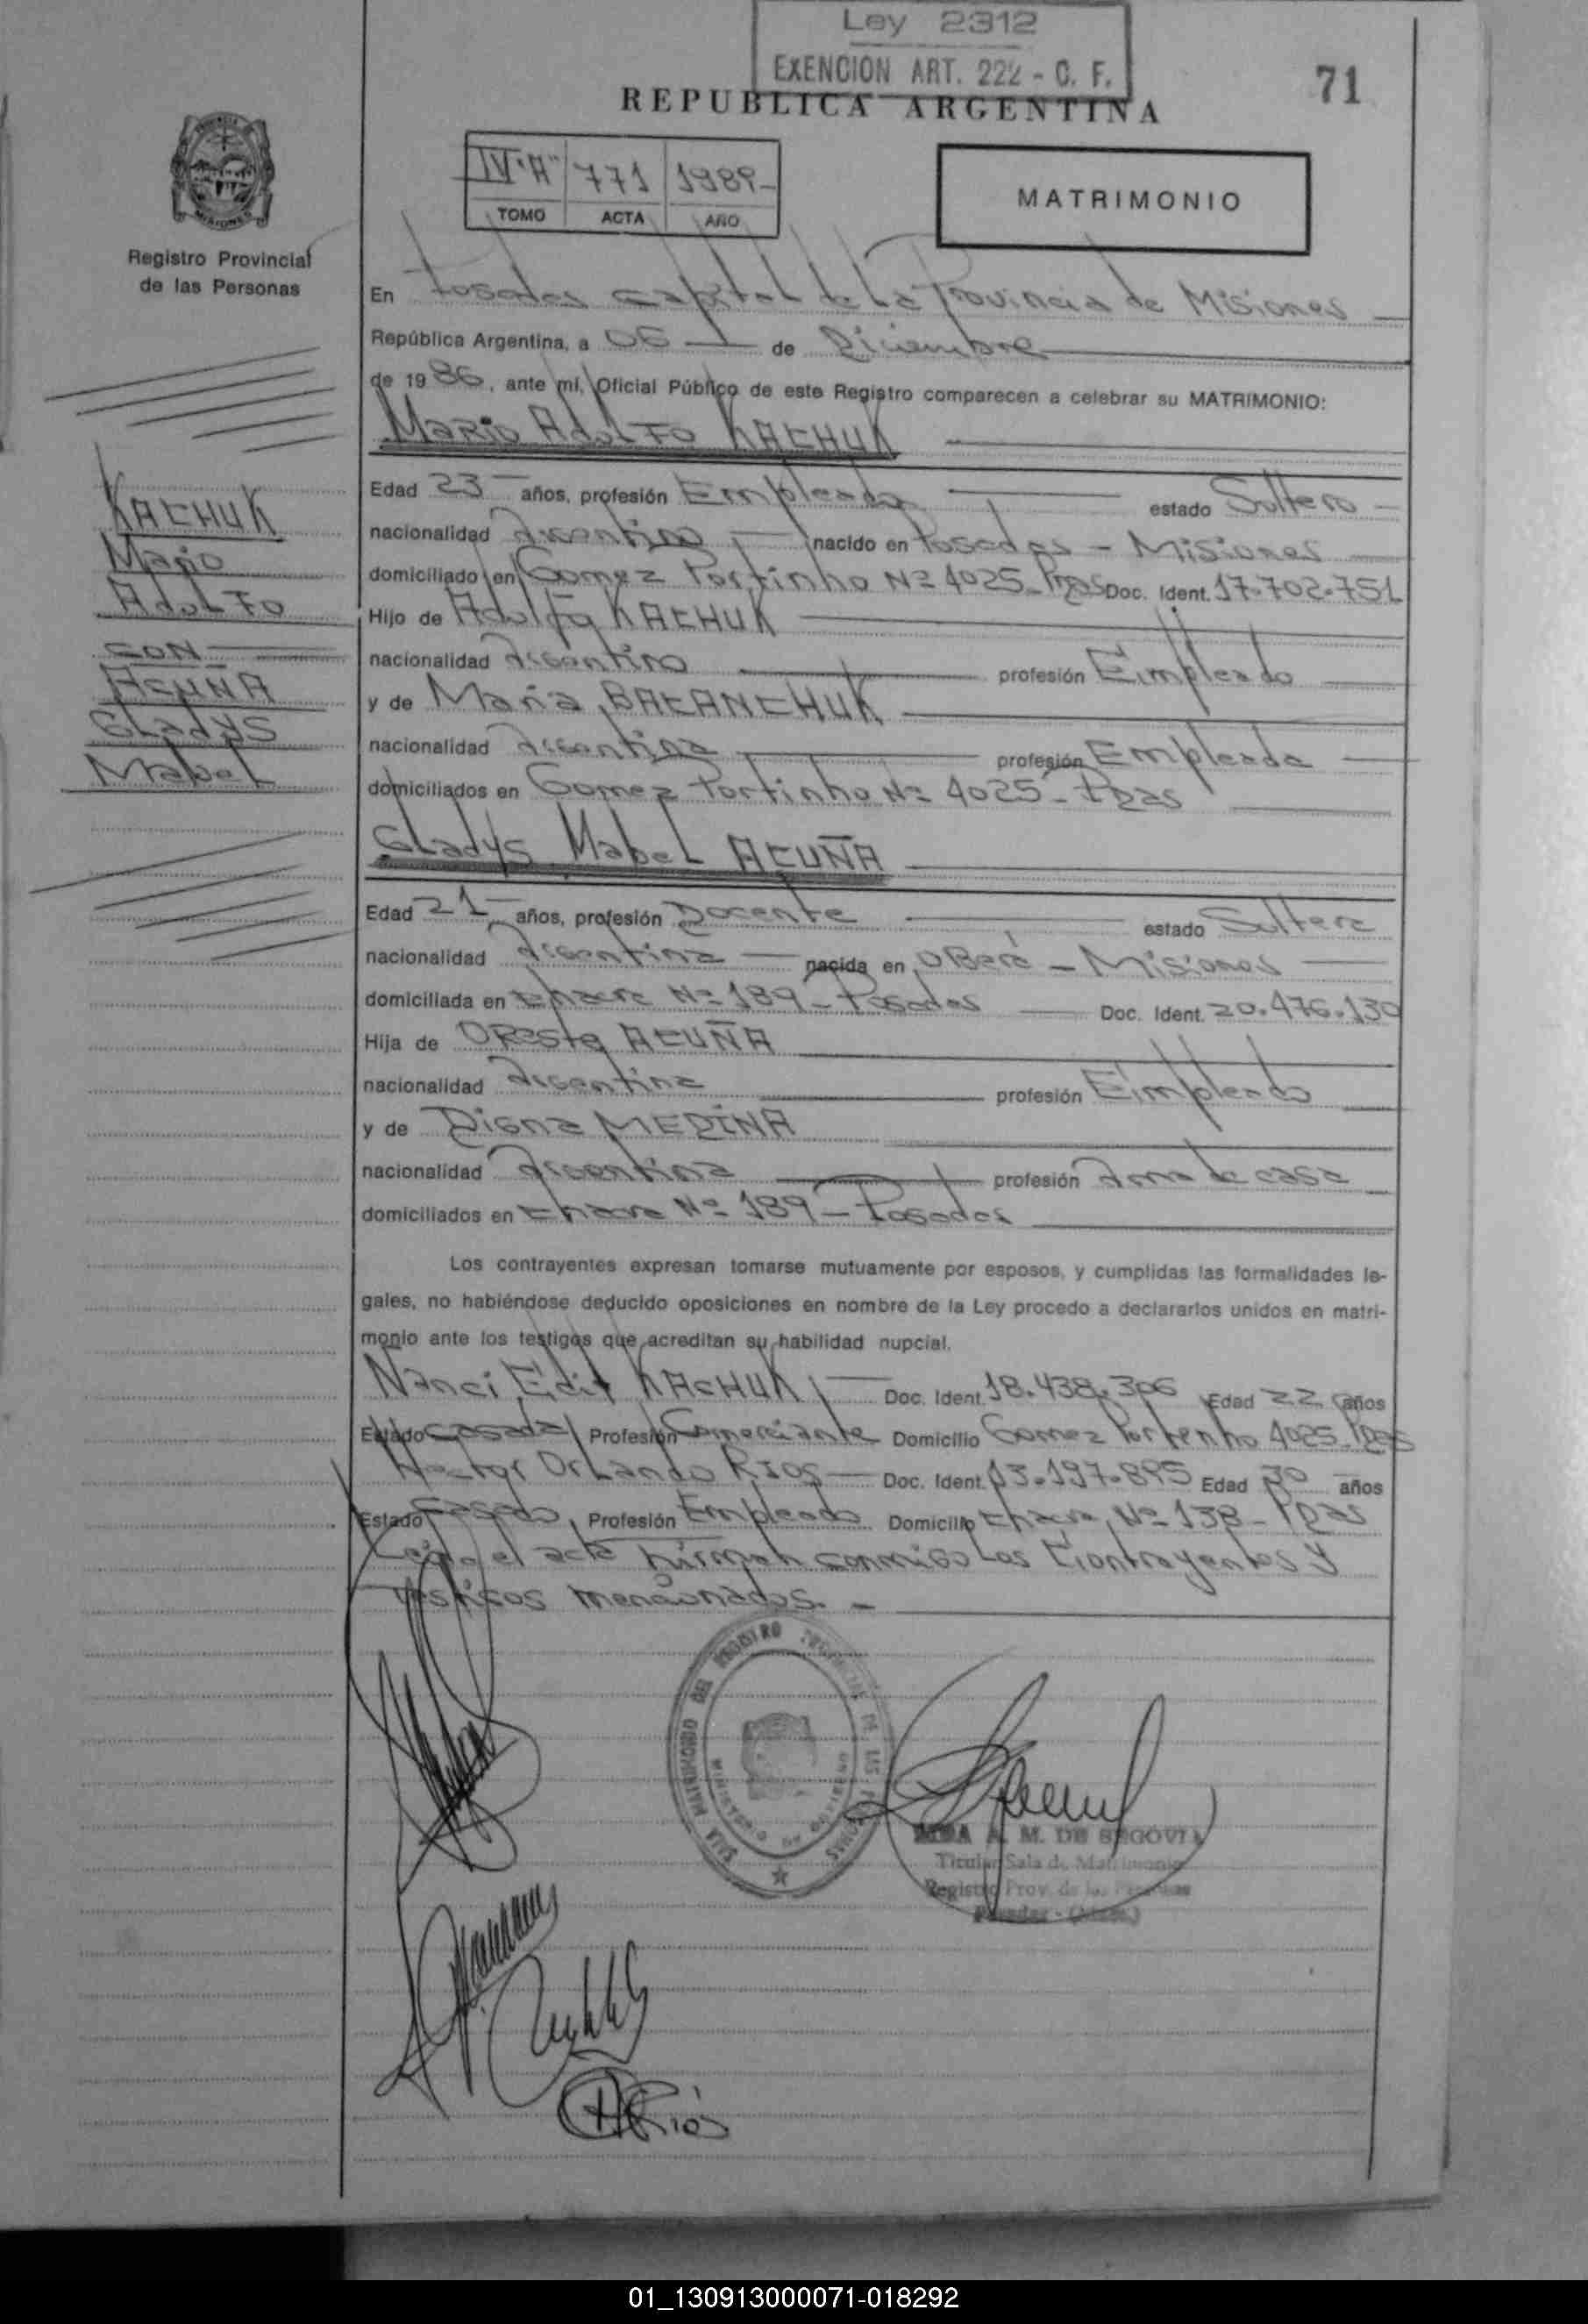 Ley 2312
EXENCION ART. 222 - C. F.
71
REPUBLICA ARGENTINA
IV "A" 771 1989-
TOMO ACTA AÑO
MATRIMONIO
PROVINCIA
MISIONES
Registro Provincial
de las Personas
En Posadas Capital de La Provincia de Misiones
República Argentina, a 06 de Diciembre
de 1986, ante mí, Oficial Público de este Registro comparecen a celebrar su MATRIMONIO:
Mario Adolfo KACHUK
KACHUK
Mario
Adolfo
CON
ACUÑA
Gladys
Mabel
Edad 23 años, profesión Empleado estado Soltero
nacionalidad Argentino nacido en Posadas - Misiones
domiciliado en Gomez Portinho Nº 4025- Pdas Doc. Ident. 17.702.751
Hijo de Adolfo KACHUK
nacionalidad Argentino profesión Empleado
y de Maria BACANCHUK
nacionalidad Argentina profesión Empleada
domiciliados en Gomez Portinho Nº 4025- Pdas
Gladys Mabel ACUÑA
Edad 21 años, profesión Docente estado Soltera
nacionalidad Argentina nacida en Oberá - Misiones
domiciliada en Chacra Nº 189- Posadas Doc. Ident. 20.476.130
Hija de Oreste ACUÑA
nacionalidad Argentina profesión Empleado
y de Digna MEDINA
nacionalidad Argentina profesión Ama de casa
domiciliados en Chacra Nº 189- Posadas
Los contrayentes expresan tomarse mutuamente por esposos, y cumplidas las formalidades le-
gales, no habiéndose deducido oposiciones en nombre de la Ley procedo a declararlos unidos en matri-
monio ante los testigos que acreditan su habilidad nupcial.
Nanci Edit KACHUK Doc. Ident. 18.438.306 Edad 22 años
Estado Casada Profesión Comerciante Domicilio Gomez Portenho 4025- Pdas
Hector Orlando RIOS Doc. Ident. 13.197.895 Edad 30 años
Estado Casado, Profesión Empleado Domicilio Chacra Nº 138- Pdas
Leida el acta firman conmigo Los Contrayentes y
testigos mencionados. -
SALA MATRIMONIO DEL REGISTRO PROVINCIAL DE LAS PERSONAS
MINISTERIO DE GOBIERNO
A. M. DE SEGOVIA
Titular Sala de Matrimonio
Registro Prov. de las Personas
Posadas - (Mnes.)
Rios
01_130913000071-018292